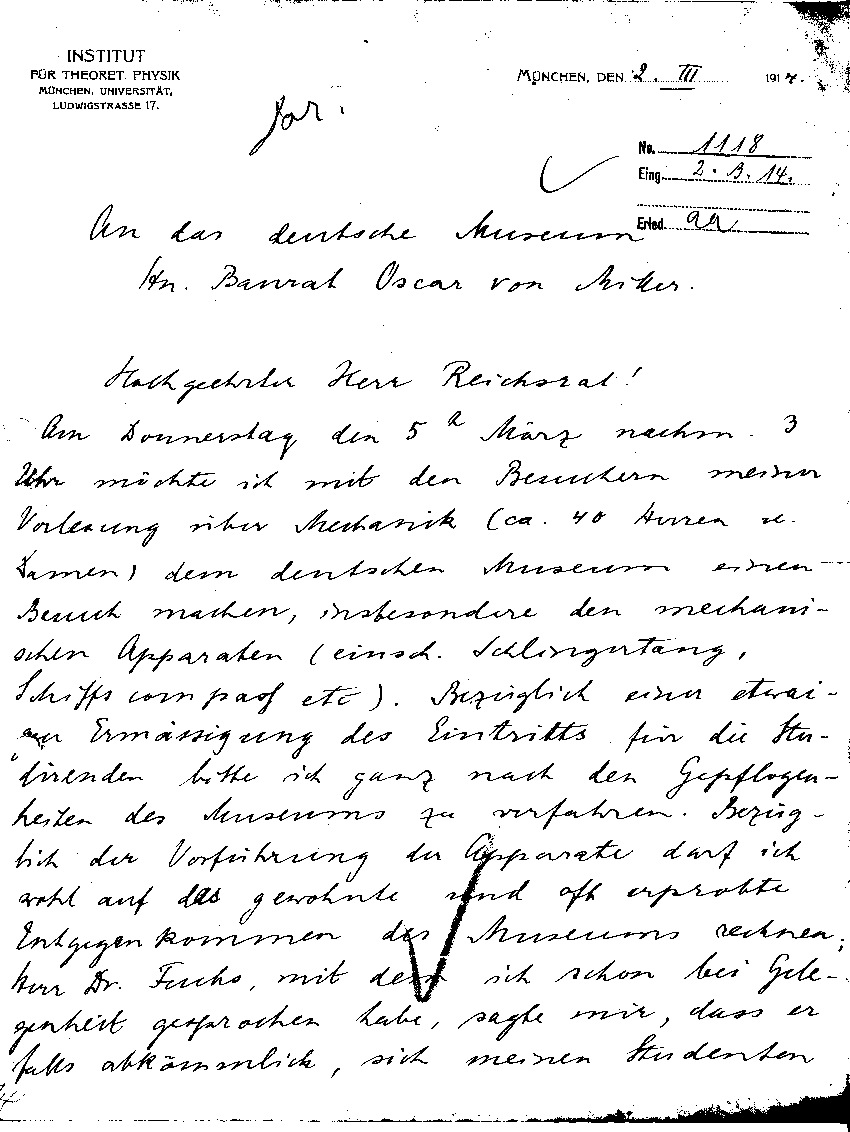 INSTITUT
FÜR THEORET. PHYSIK
MÜNCHEN, UNIVERSITÄT,
LUDWIGSTRASSE 17.
MÜNCHEN, DEN 2. III 1914.
No. 1118
Eing. 2. 3. 14.
Erled.
An das deutsche Museum
Hn. Baurat Oscar von Miller.
Hochgeehrter Herr Reichsrat!
Am Donnerstag den 5 März nachm. 3
Uhr möchte ich mit den Besuchern meiner
Vorlesung über Mechanik (ca. 40 Herren u.
Damen) dem deutschen Museum einen
Besuch machen, insbesondere den mechani-
schen Apparaten (einsch. Schlingertang,
Schiffscompass etc). Bezüglich einer etwai-
gen Ermässigung des Eintritts für die Stu-
direnden bitte ich ganz nach den Gepflogen-
heiten des Museums zu verfahren. Bezüg-
lich der Vorführung der Apparate darf ich
wohl auf das gewohnte und oft erprobte
Entgegenkommen des Museums rechnen;
Herr Dr. Fuchs, mit dem ich schon bei Gele-
genheit gesprochen habe, sagte mir, dass er
falls abkömmlich, sich meinen Studenten